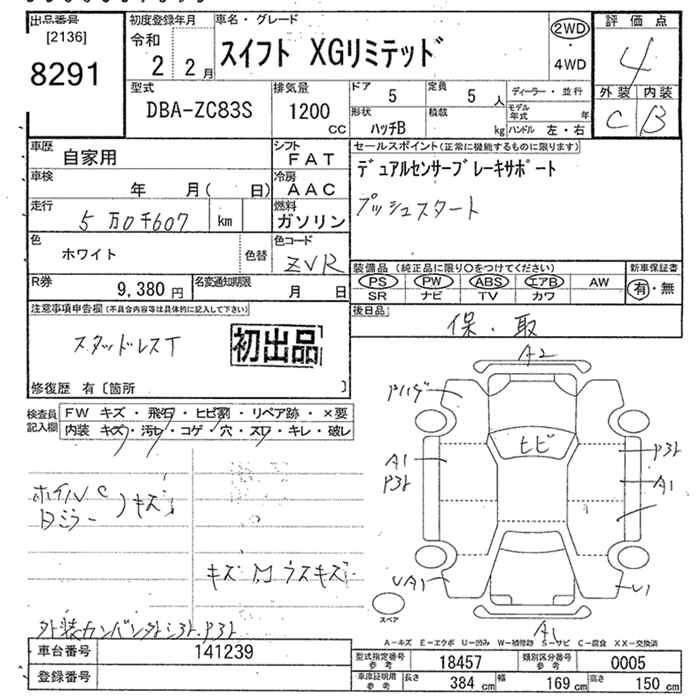 出品番号
[2136]
8291
初度登録年月
令和
2 2月
車名・グレード
スイフト XGリミテッド
2WD
・
4WD
評価点
4
外装 内装
C B
型式
DBA-ZC83S
排気量
1200
CC
ドア
5
定員
5 人
ディーラー・並行
形状
ハッチB
積載
kg
モデル年式 年
ハンドル 左・右
車歴
自家用
シフト
FAT
車検
年 月( 日)
冷房
AAC
走行
5万0千607 km
燃料
ガソリン
色
ホワイト
色替
色コード
ZVR
R券
9,380 円
名変通知期限
月 日
セールスポイント(正常に機能するものに限ります)
デュアルセンサーブレーキサポート
プッシュスタート
装備品(純正品に限り○をつけてください)
PS PW ABS エアB AW
SR ナビ TV カワ
新車保証書
有・無
後日品
保・取
注意事項申告欄(不具合内容等は具体的に記入して下さい)
スタッドレスT
初出品
修復歴 有〔箇所 〕
検査員記入欄
FW キズ・飛石・ヒビ割・リペア跡・×要
内装 キズ・汚レ・コゲ・穴・スレ・キレ・破レ
ホイルC
キズ
キズ 凹 ウスキズ
A2
ヒビ
A1
P跡
P跡
A1
UA1
U1
A1
スペア
A-キズ E-エクボ U-凹み W-補修跡 S-サビ C-腐食 XX-交換済
車台番号
141239
登録番号
型式指定番号 参考
18457
類別区分番号 参考
0005
車庫証明用 参考
長さ 384 cm
幅 169 cm
高さ 150 cm